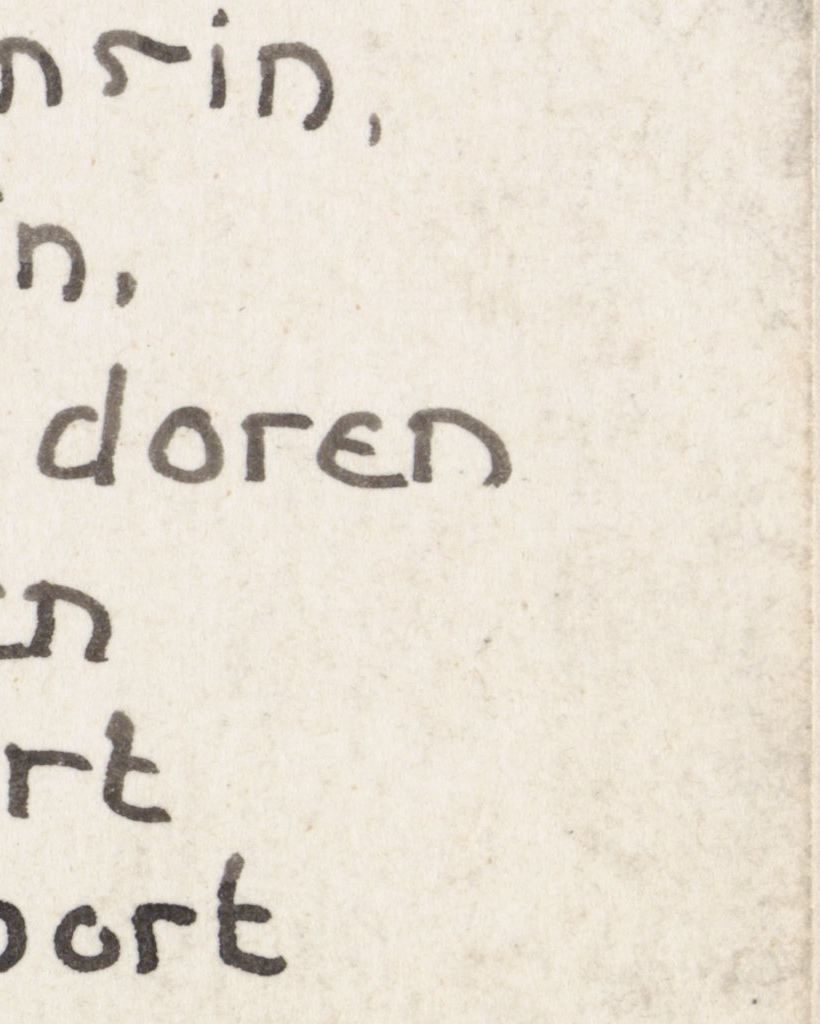 nsin,
n,
doren
en
rt
oort